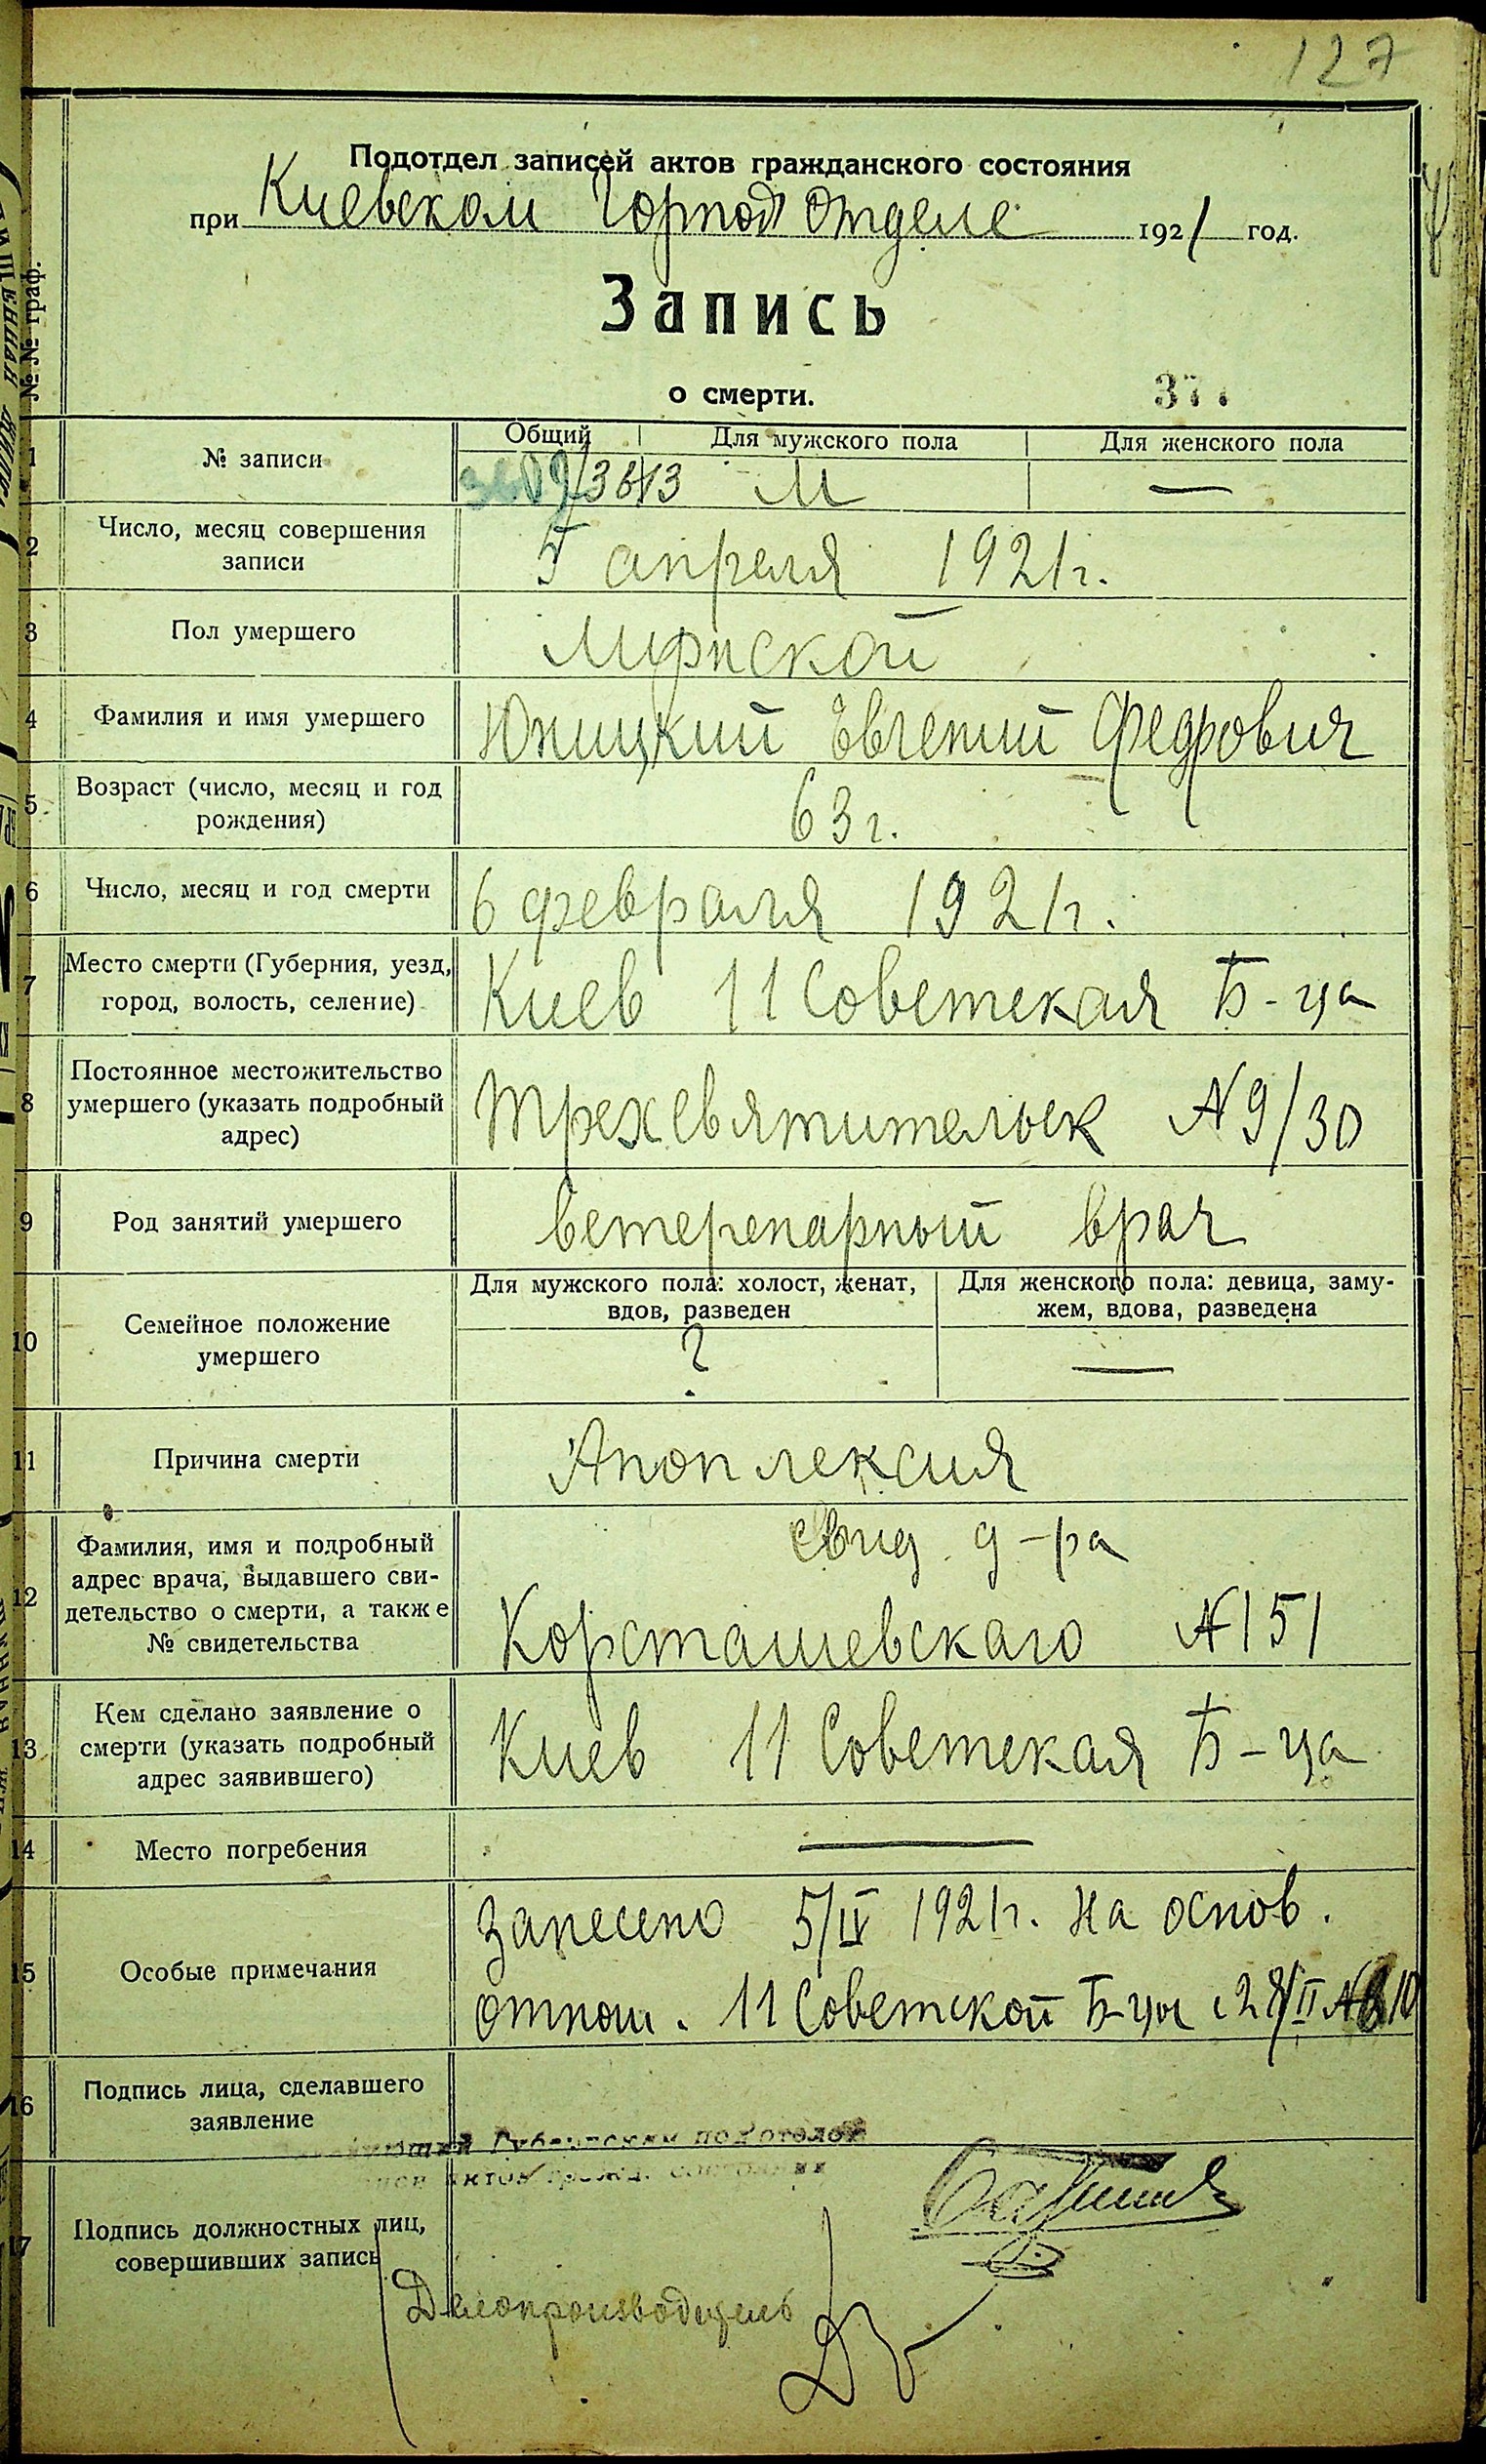 127
Подотдел записей актов гражданского состояния
при Киевском Горпод отделе 1921 год.
Запись
о смерти.
№ № граф.
1 № записи
Общий Для мужского пола Для женского пола
М —
2 Число, месяц совершения записи
5 апреля 1921 г.
3 Пол умершего
Мужской
4 Фамилия и имя умершего
Юницкий Евгений Федрович
5 Возраст (число, месяц и год рождения)
63 г.
6 Число, месяц и год смерти
6 февраля 1921 г.
7 Место смерти (Губерния, уезд, город, волость, селение)
Киев 11 Советская Б-ца
8 Постоянное местожительство умершего (указать подробный адрес)
Трехсвятительск № 9/30
9 Род занятий умершего
ветеренарный врач
10 Семейное положение умершего
Для мужского пола: холост, женат, вдов, разведен
?
Для женского пола: девица, замужем, вдова, разведена
—
11 Причина смерти
Апоплексия
12 Фамилия, имя и подробный адрес врача, выдавшего свидетельство о смерти, а также № свидетельства
свид. д-ра
Корсташевскаго № 151
13 Кем сделано заявление о смерти (указать подробный адрес заявившего)
Киев 11 Советская Б-ца
14 Место погребения
—
15 Особые примечания
Занесено 5/IV 1921 г. на основ.
отнош. 11 Советской Б-цы
16 Подпись лица, сделавшего заявление
17 Подпись должностных лиц, совершивших запись
Делопроизводитель